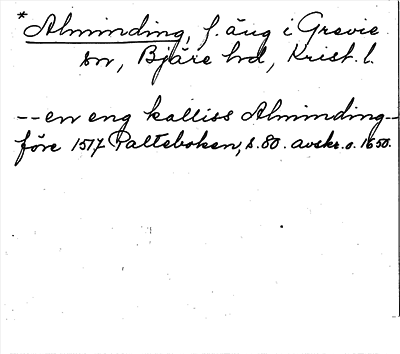 *Alminding, f. äng i Grevie
sn, Bjäre hd, Krist. l.
--en eng kalliss Alminding--
före 1517 Palteboken, s. 80. avskr. o. 1650.